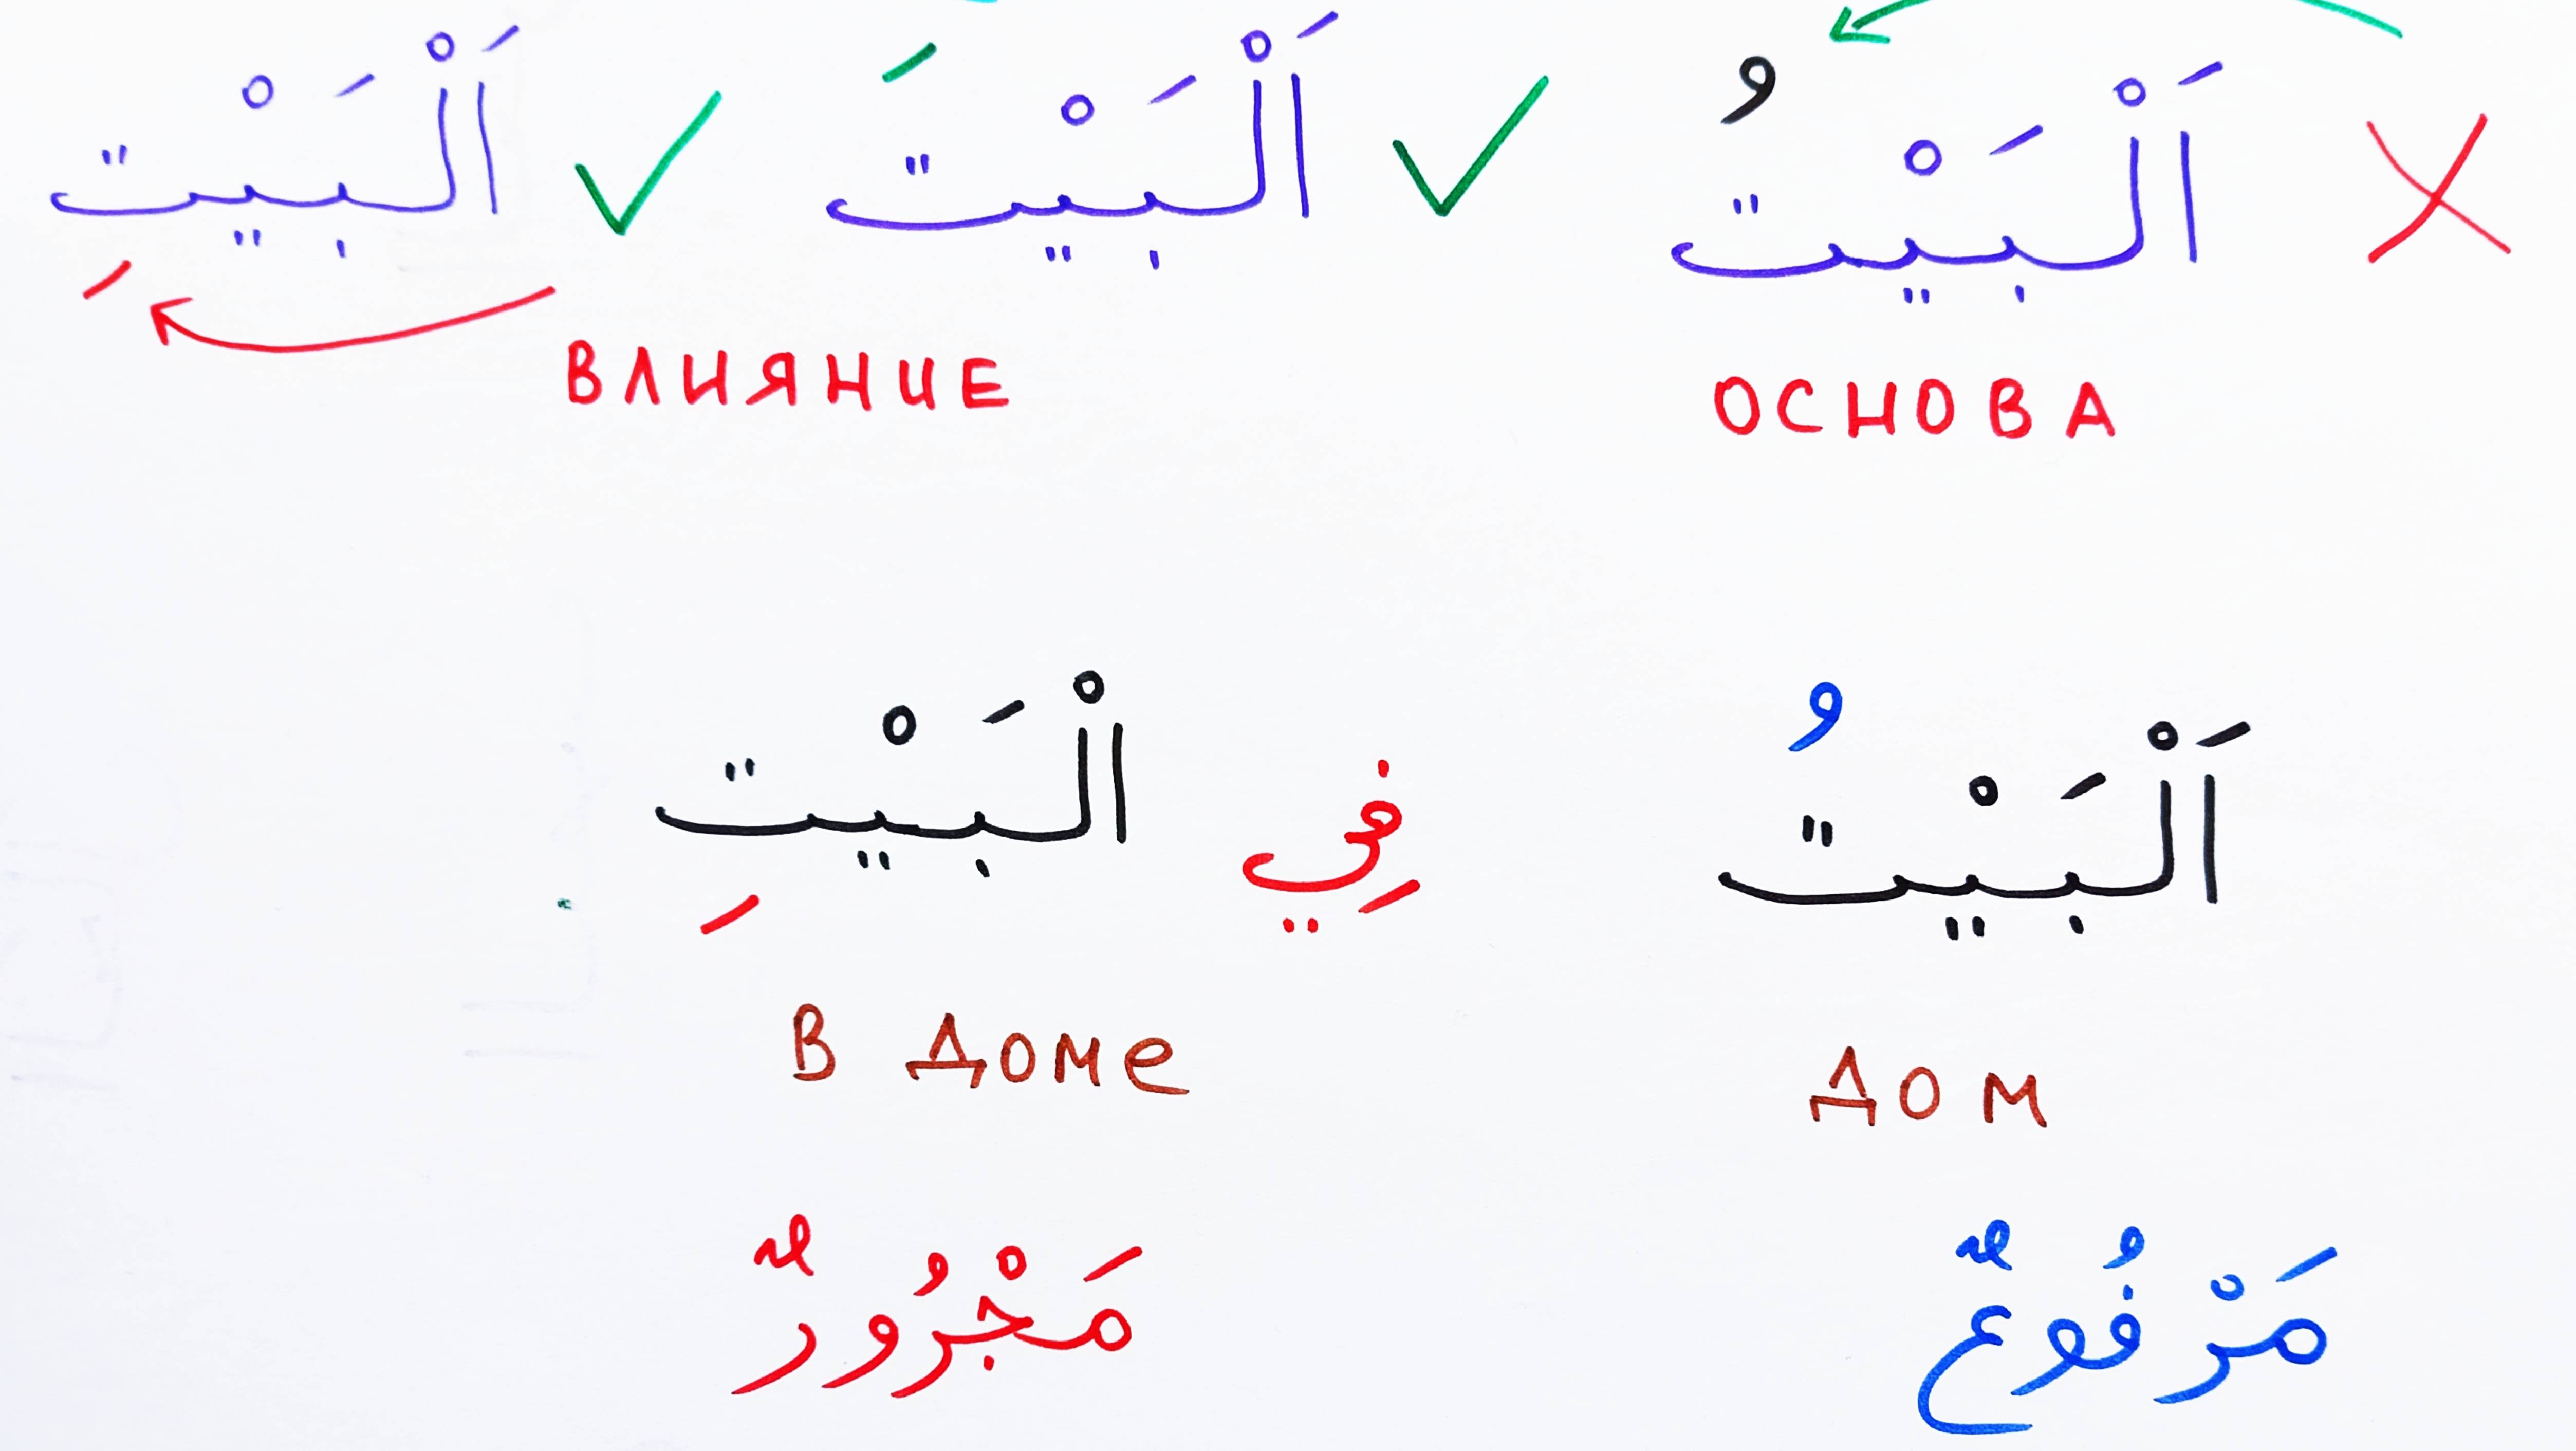 اَلْبَيْتُ اَلْبَيْتَ اَلْبَيْتِ
ВЛИЯНИЕ ОСНОВА
اَلْبَيْتُ فِي الْبَيْتِ
В ДОМЕ ДОМ
مَرْفُوعٌ مَجْرُورٌ